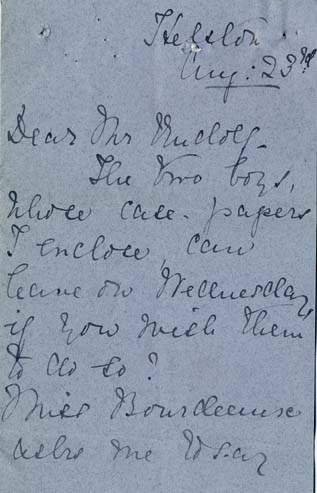 Helston
Aug: 23rd
Dear Mr Rudolf.
The two boys,
whose case-papers
I enclose, can
leave on Wednesday,
if you wish them
to do so?
Miss
asks me to say